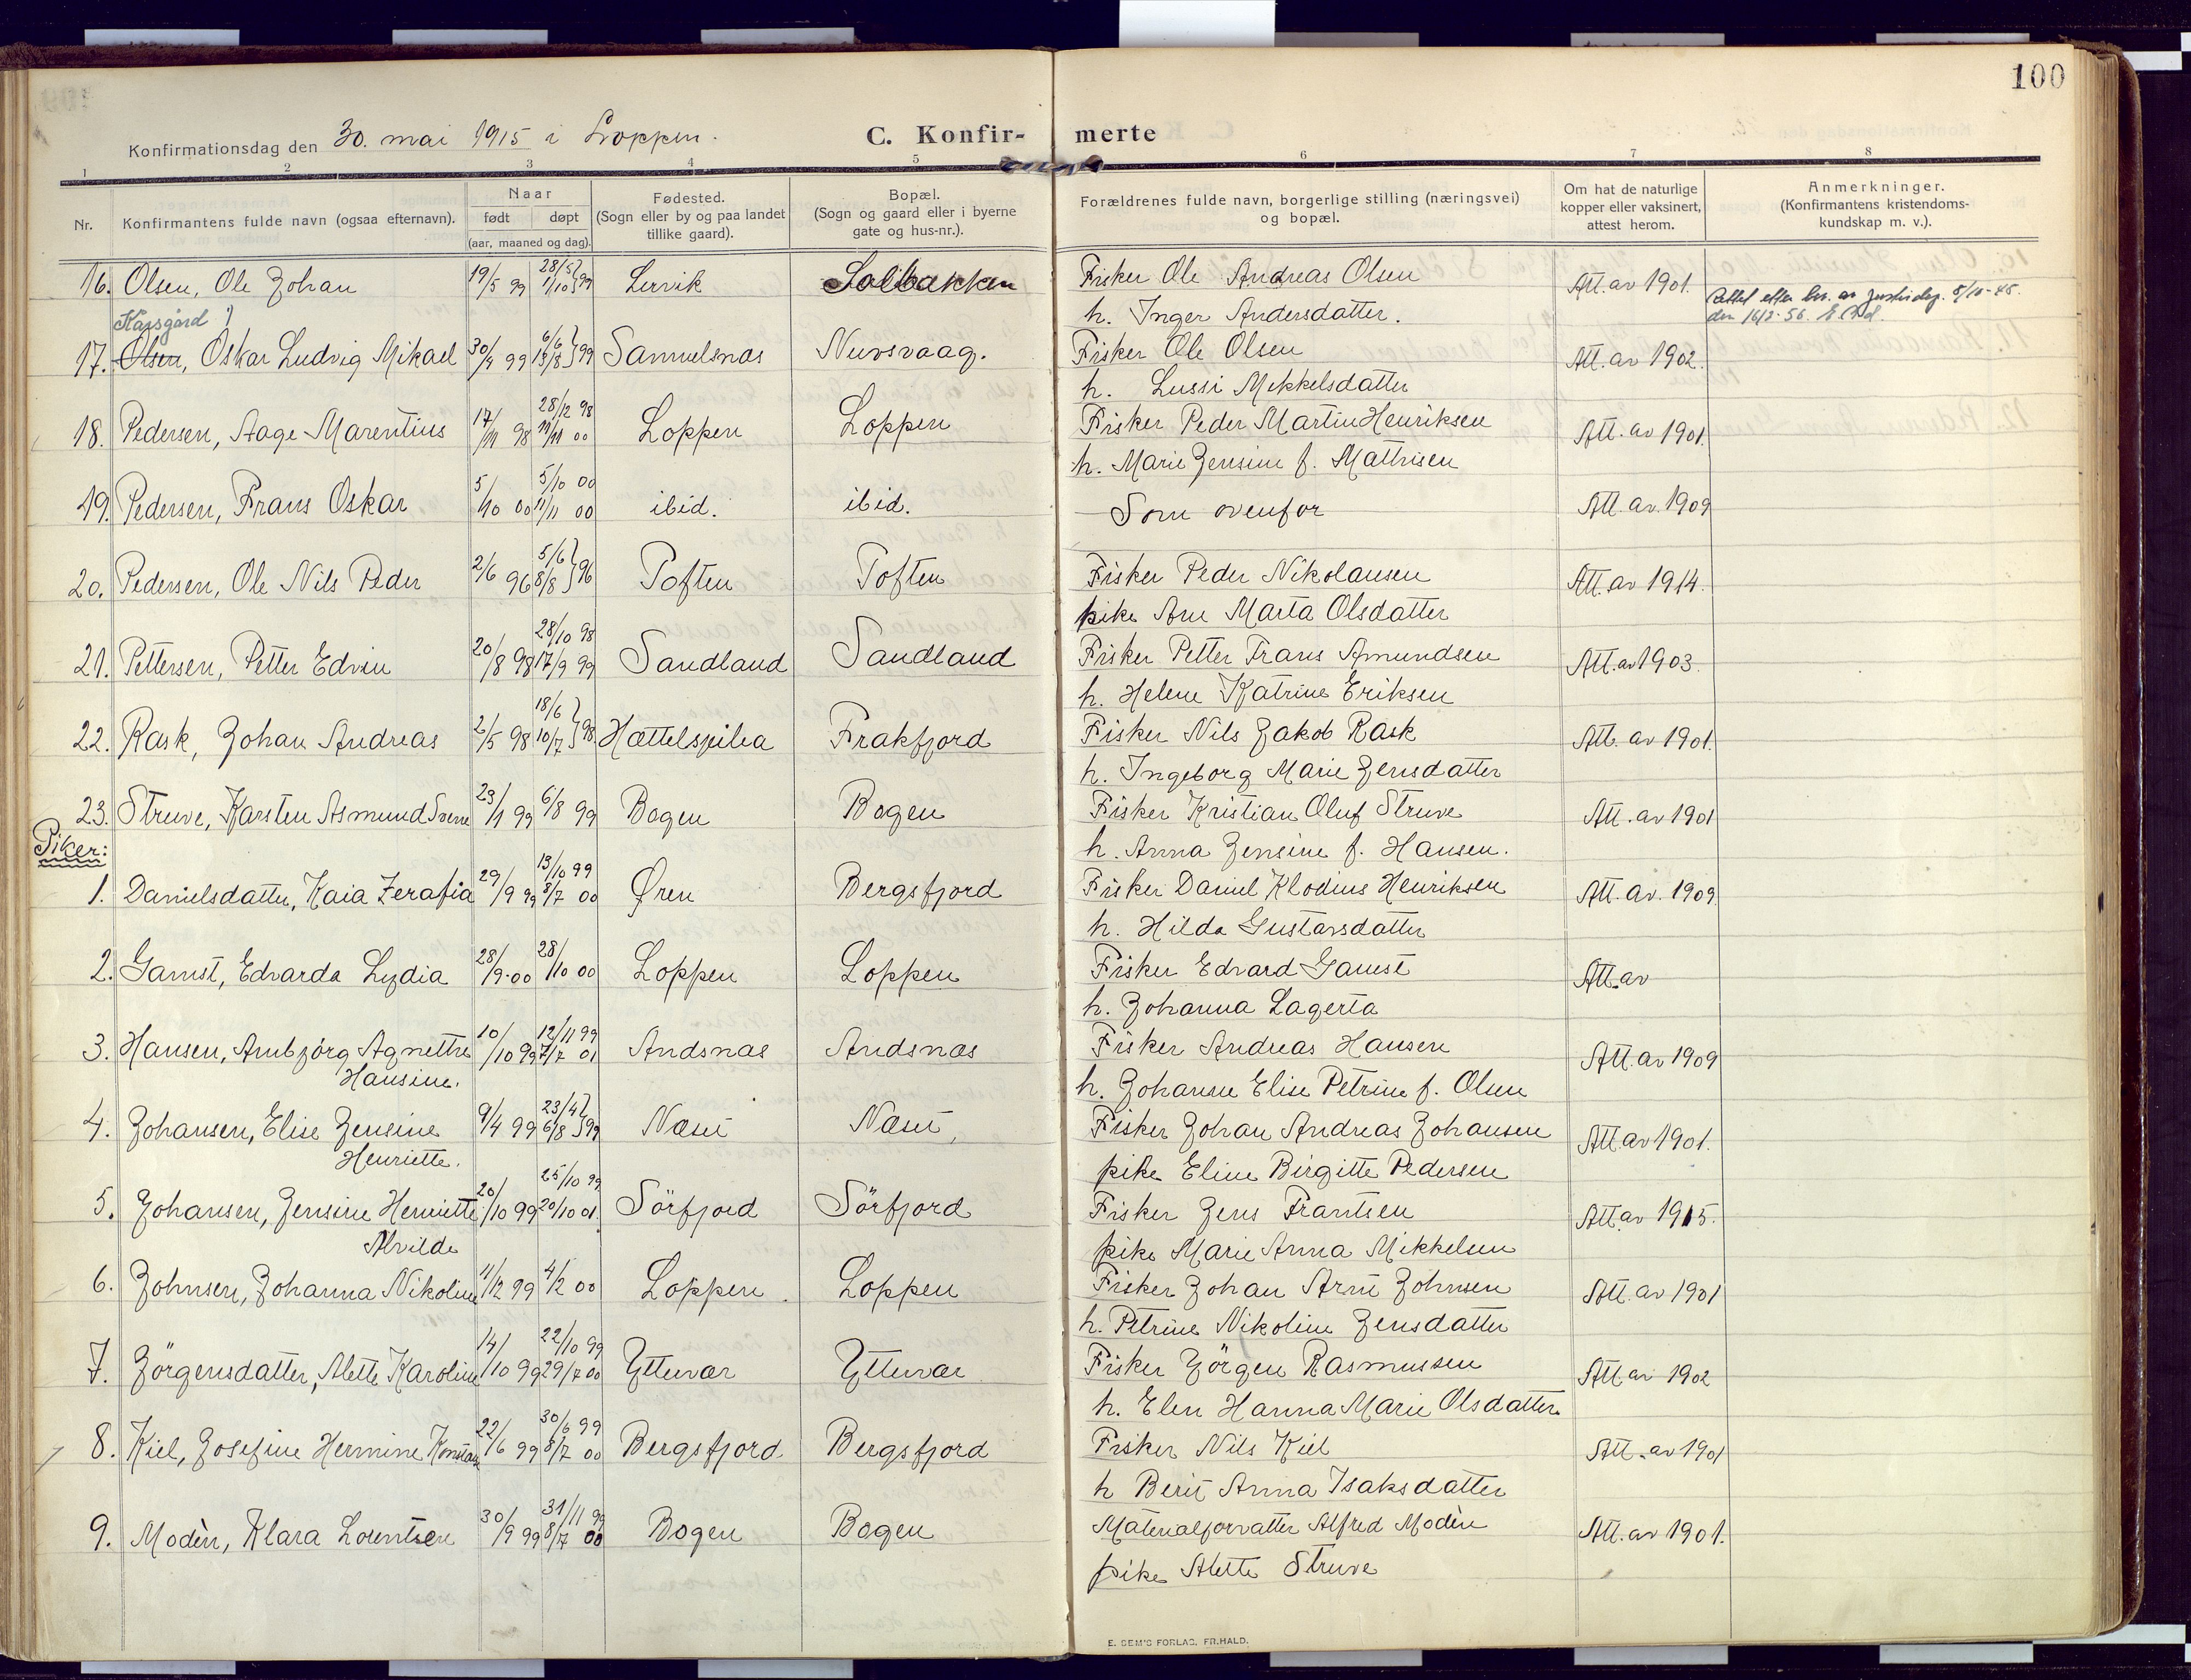 100
Konfirmationsdag den 30. mai 1915 i Loppen.
C. Konfir- merte
1 2 3 4 5 6 7 8
Nr.
Konfirmantens fulde navn (ogsaa efternavn).
Naar
født døpt
(aar, maaned og dag).
Fødested.
(Sogn eller by og paa landet
tillike gaard).
Bopæl.
(Sogn og gaard eller i byerne
gate og hus-nr.).
Forældrenes fulde navn, borgerlige stilling (næringsvei)
og bopæl.
Om hat de naturlige
kopper eller vaksinert,
attest herom.
Anmerkninger.
(Konfirmantens kristendoms-
kundskap m. v.).
16. Olsen, Ole Johan 19/5 99 28/5 11/10 } 99 Lervik Solbakken Fisker Ole Andreas Olsen Att. av 1901.
h. Inger Andersdatter.
Rettet efter br. av Justisdep. 5/10-45.
den 16/2-56.
Kapsgård
17. Olsen, Oskar Ludvig Mikael 30/4 99 6/6 13/8 } 99 Samuelsnæs Nuvsvaag. Fisker Ole Olsen Att. av 1902.
h. Lussi Mikkelsdatter
18. Pedersen, Aage Marentius 17/11 98 28/12 98 11/11 00 Loppen Loppen Fisker Peder Martin Henriksen Att. av 1901.
h. Marie Jensine f. Mathisen
19. Pedersen, Frans Oskar 5/10 00 5/10 00 11/11 00 ibid. ibid. Som ovenfor Att. av. 1909
20. Pedersen, Ole Nils Peder 2/6 96 5/6 8/8 } 96 Toften Toften Fisker Peder Nikolausen Att. av 1914.
pike Ane Marta Olsdatter
21. Pettersen, Petter Edvin 20/8 98 28/10 98 17/9 99 Sandland Sandland Fisker Petter Frans Amundsen Att. av 1903.
h. Helene Katrine Eriksen
22. Rask, Johan Andreas 2/5 98 18/6 10/7 } 98 Frakfjord Fisker Nils Jakob Rask Att. av 1901.
h. Ingeborg Marie Jensdatter
23. Struve, Karsten Asmund Sverre 23/1 99 6/8 99 Bogen Bogen Fisker Kristian Oluf Struve Att. av 1901
h. Anna Jensine f. Hansen.
Piker:
1. Danielsdatter, Kaia Zerafia 29/9 99 13/10 99 8/7 00 Øren Bergsfjord Fisker Daniel Klodius Henriksen Att. av. 1909.
h. Hilda Gustavsdatter
2. Gamst, Edvarda Lydia 28/9.00 28/10 00 Loppen Loppen Fisker Edvard Gamst Att. av
h. Johanna Lagerta
3. Hansen, Arnbjörg Agnethe 10/10 99 12/11 99 7/7 01 Andsnæs Andsnæs Fisker Andreas Hansen Att. av 1909
Hansine.
h. Johanne Elise Petrine f. Olsen
4. Johansen, Elise Jensine 9/4 99 23/4 6/8 } 99 Næst Næst, Fisker Johan Andreas Johansen Att. av 1901.
Henriette.
pike Eline Birgitte Pedersen
5. Johansen, Jensine Henriette 20/10 99 25/10 99 20/10 01. Sörfjord Sörfjord Fisker Jens Frantsen Att. av 1915.
Alvilde
pike Marie Anna Mikkelsen
6. Johnsen, Johanna Nikoline 11/12 99 4/2 00 Loppen Loppen Fisker Johan Arnt Johnsen Att. av 1901
h. Petrine Nikoline Jensdatter
7. Jörgensdatter, Alette Karoline 14/10 99 22/10 99 29/7 00 Yttervær Yttervær Fisker Jörgen Rasmussen Att. av 1902
h. Elen Hanna Marie Olsdatter
8. Kiel, Josefine Hermine 22/6 99 30/6 99 8/7 00 Bergsfjord Bergsfjord Fisker Nils Kiel Att. av 1901
h Berit Anna Isaksdatter
9. Modèn, Klara Lorentsen 30/9 99 31/11 99 8/7 00 Bogen Bogen Materialforvalter Alfred Modèn Att. av 1901.
pike Alette Struve
E. SEM'S FORLAG. FR.HALD.